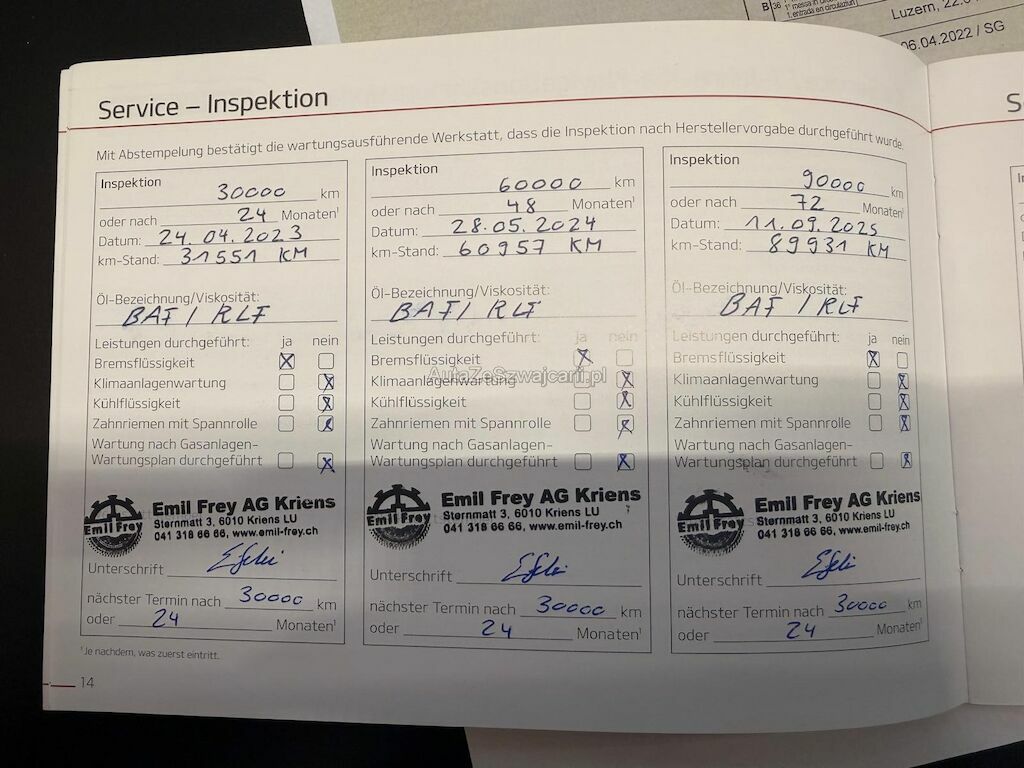 B 36
1ª messa in circolaziun
1. entrada en circulaziun
Luzern, 22.0
06.04.2022 / SG
Service – Inspektion
S
Mit Abstempelung bestätigt die wartungsausführende Werkstatt, dass die Inspektion nach Herstellervorgabe durchgeführt wurde.
Inspektion
30000 km
oder nach 24 Monaten¹
Datum: 24.04.2023
km-Stand: 31551 KM
Öl-Bezeichnung/Viskosität:
BAF / RLF
Leistungen durchgeführt: ja nein
Bremsflüssigkeit X
Klimaanlagenwartung X
Kühlflüssigkeit X
Zahnriemen mit Spannrolle X
Wartung nach Gasanlagen-
Wartungsplan durchgeführt X
Emil Frey
Emil Frey AG Kriens
Sternmatt 3, 6010 Kriens LU
041 318 66 66, www.emil-frey.ch
Unterschrift
nächster Termin nach 30000 km
oder 24 Monaten¹
Inspektion
60000 km
oder nach 48 Monaten¹
Datum: 28.05.2024
km-Stand: 60957 KM
Öl-Bezeichnung/Viskosität:
BAF / RLF
Leistungen durchgeführt: ja nein
Bremsflüssigkeit X
AutaZeSzwajcarii.pl
Klimaanlagenwartung X
Kühlflüssigkeit X
Zahnriemen mit Spannrolle X
Wartung nach Gasanlagen-
Wartungsplan durchgeführt X
Emil Frey
Emil Frey AG Kriens
Sternmatt 3, 6010 Kriens LU
041 318 66 66, www.emil-frey.ch
Unterschrift
nächster Termin nach 30000 km
oder 24 Monaten¹
Inspektion
90000 km
oder nach 72 Monaten¹
Datum: 11.09.2025
km-Stand: 89931 KM
Öl-Bezeichnung/Viskosität:
BAF / RLF
Leistungen durchgeführt: ja nein
Bremsflüssigkeit X
Klimaanlagenwartung X
Kühlflüssigkeit X
Zahnriemen mit Spannrolle X
Wartung nach Gasanlagen-
Wartungsplan durchgeführt X
Emil Frey
Emil Frey AG Kriens
Sternmatt 3, 6010 Kriens LU
041 318 66 66, www.emil-frey.ch
Unterschrift
nächster Termin nach 30000 km
oder 24 Monaten¹
¹Je nachdem, was zuerst eintritt.
14